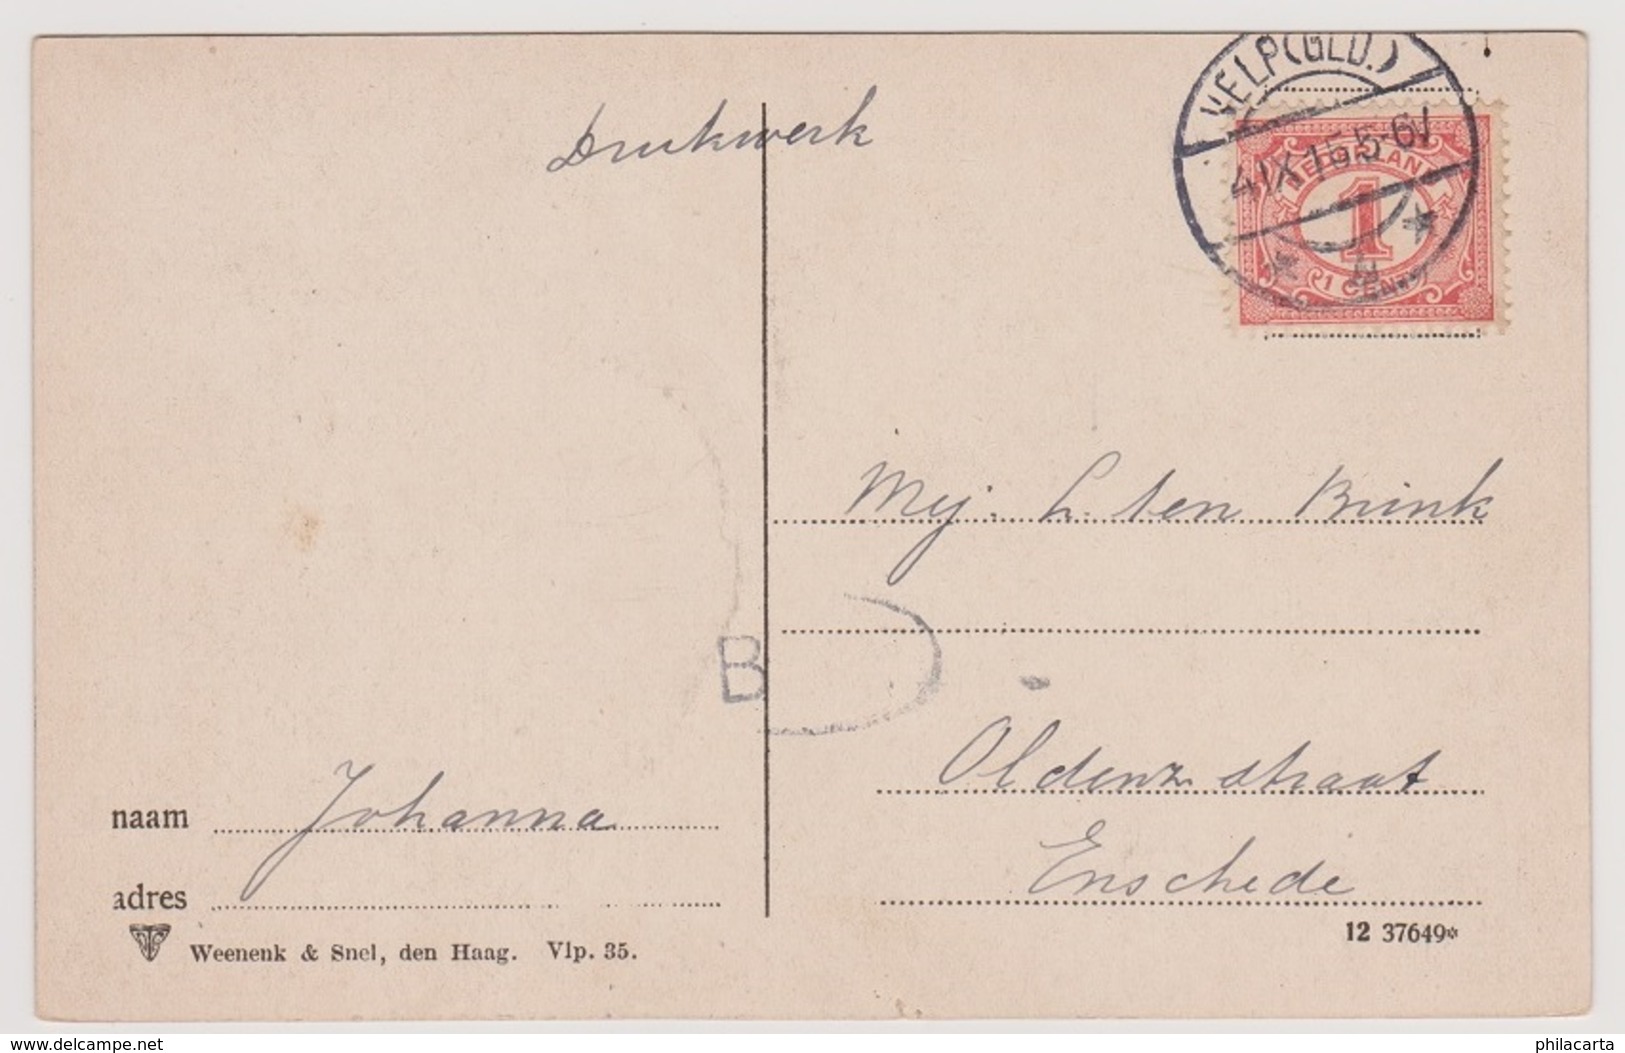 VELP (GLD.)
4 IX 15 5-6V
NEDERLAND
1
1 CENT
Drukwerk
Mej. L. ten Brink
B
Oldenz. straat
Enschede
naam Johanna
adres
Weenenk & Snel, den Haag. Vlp. 35.
12 37649*
www.delcampe.net
philacarta